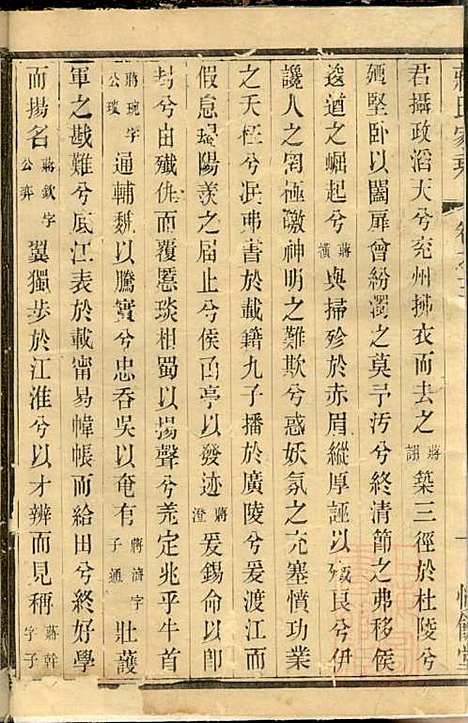 蔣氏家乘
君攝政滔天兮兖州拂衣而去之蔣詡築三徑於杜陵兮
廼堅卧以闔扉曾紛濁之莫予汚兮終清節之弗移俟
逡遒之崛起兮蔣橫與掃殄於赤眉縱厚誣以殲良兮伊
讒人之罔極激神明之難欺兮惑妖氛之充塞憤功業
之夭枉兮泯弗書於載籍九子播於廣陵兮爰渡江而
假息場陽羨之届止兮侯亭以發迹蔣澄爰錫命以卽
封兮由殲仇而覆慝琰相蜀以揚聲兮羌定兆乎牛首
蔣琬字公琰通輔魏以騰實兮忠吞吳以奄有蔣濟字子通壯護
軍之戡難兮厎江表於載甯易幃帳而給田兮終好學
而揚名蔣欽字公奕翼獨步於江淮兮以才辨而見稱蔣幹字子